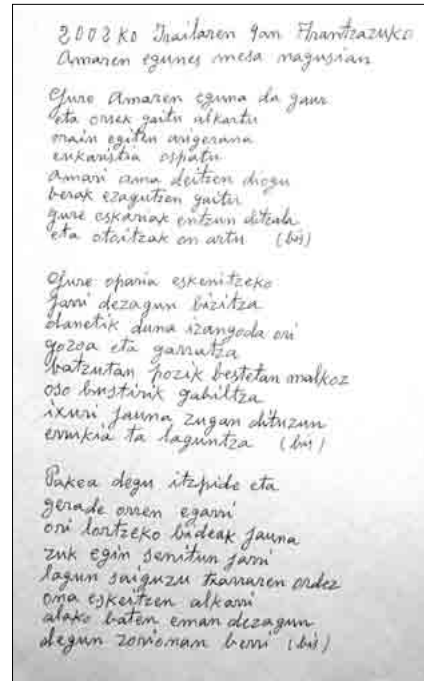 2003ko Irailaren 9an Arantzazuko
Amaren egunez mesa nagusian
Gure Amaren eguna da gaur
eta orrek gaitu alkartu
orain egiten ari gerana
eukaristia ospatu
amari ama deitzen diogu
berak ezagutzen gaitu
gure eskariak entzun ditzala
eta otoitzak on artu (bis)
Gure oparia eskenitzeko
jarri dezagun bizitza
danetik duna izangoda ori
gozoa eta garratza
batzutan pozik bestetan malkoz
oso bustirik gabiltza
ixuri jauna zugan dituzun
errukia ta laguntza (bis)
Pakea degu itzpide eta
gerade orren egarri
ori lortzeko bideak jauna
zuk egin zenitun jarri
lagun zaiguzu txarraren ordez
ona eskeitzen alkarri
alako baten eman dezagun
degun zorionan berri (bis)